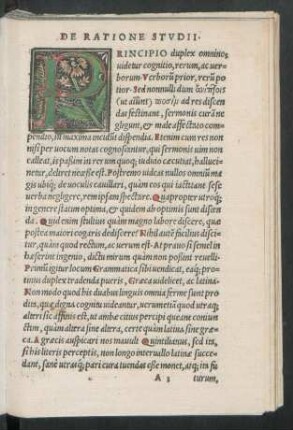 DE RATIONE STVDII.
PRINCIPIO duplex omnino
uidetur cognitio, rerum, ac uer
borum. Verborū prior, rerū po
tior. Sed nonnulli dum
(ut aiunt) ad res discen
das festinant, sermonis curā ne
gligunt, & male affectato com
pendio, in maxima incidūt dispendia. Etenim cum res non
nisi per uocum notas cognoscantur, qui sermonis uim non
calleat, is passim in rerum quoq; iudicio cæcutiat, hallucí
netur, deliret necesse est. Postremo uideas nullos omniū ma
gis ubiq; de uoculis cauillari, quàm eos qui iactitant sese
uerba negligere, rem ipsam spectare. Quapropter utroq;
in genere statim optima, & quidem ab optimis sunt discen
da. Quid enim stultius quàm magno labore discere, quæ
postea maiori cogaris dediscere? Nihil autē facilius disci
tur, quàm quod rectum, ac uerum est. At praua si semel in
hæserint ingenio, dictu mirum quàm non possint reuelli.
Primū igitur locum Grammatica sibi uendicat, eaq; pro
tinus duplex tradenda pueris, Græca uidelicet, ac latina.
Non modo quod his duabus linguis omnia ferme sunt prodi
ta, quæ digna cognitu uideantur, uerumetiā quod utraq;
alteri sic affinis est, ut ambæ citius percipi queant coniun
ctim, quàm altera sine altera, certe quàm latina sine græ
ca. A græcis auspicari nos mauult Quintilianus, sed ita,
si his literis perceptis, non longo interuallo latinæ succe
dant, sanè utraq; pari cura tuendas esse monet, atq; ita fu
A 2 turum,